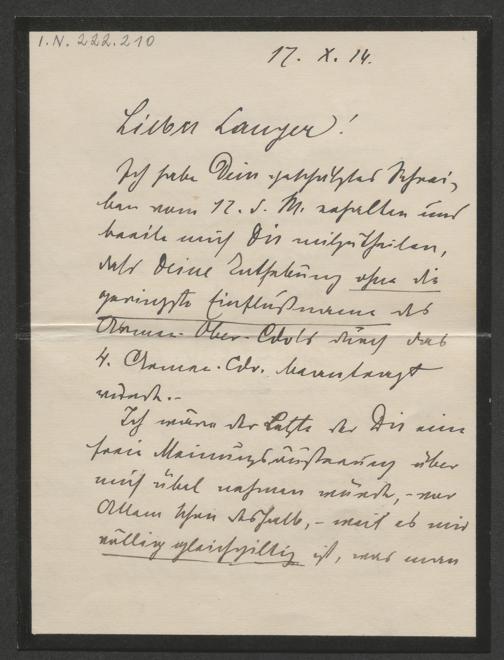 I.N. 222.210
17. X. 14.
Lieber Langer!
Ich habe Dein geschätztes Schrei-
ben vom 12. d. M. erhalten und
beeile mich Dir mitzutheilen,
daß Deine Enthebung ohne die
geringste Einflußname des
Armee-Ober-Cdos durch das
4. Armee-Cdo. beantragt
wurde.-
Ich wäre der Letzte der Dir eine
freie Meinungsäusserung über
mich übel nehmen würde, - vor
Allem schon deshalb, - weil es mir
völlig gleichgiltig ist, was man